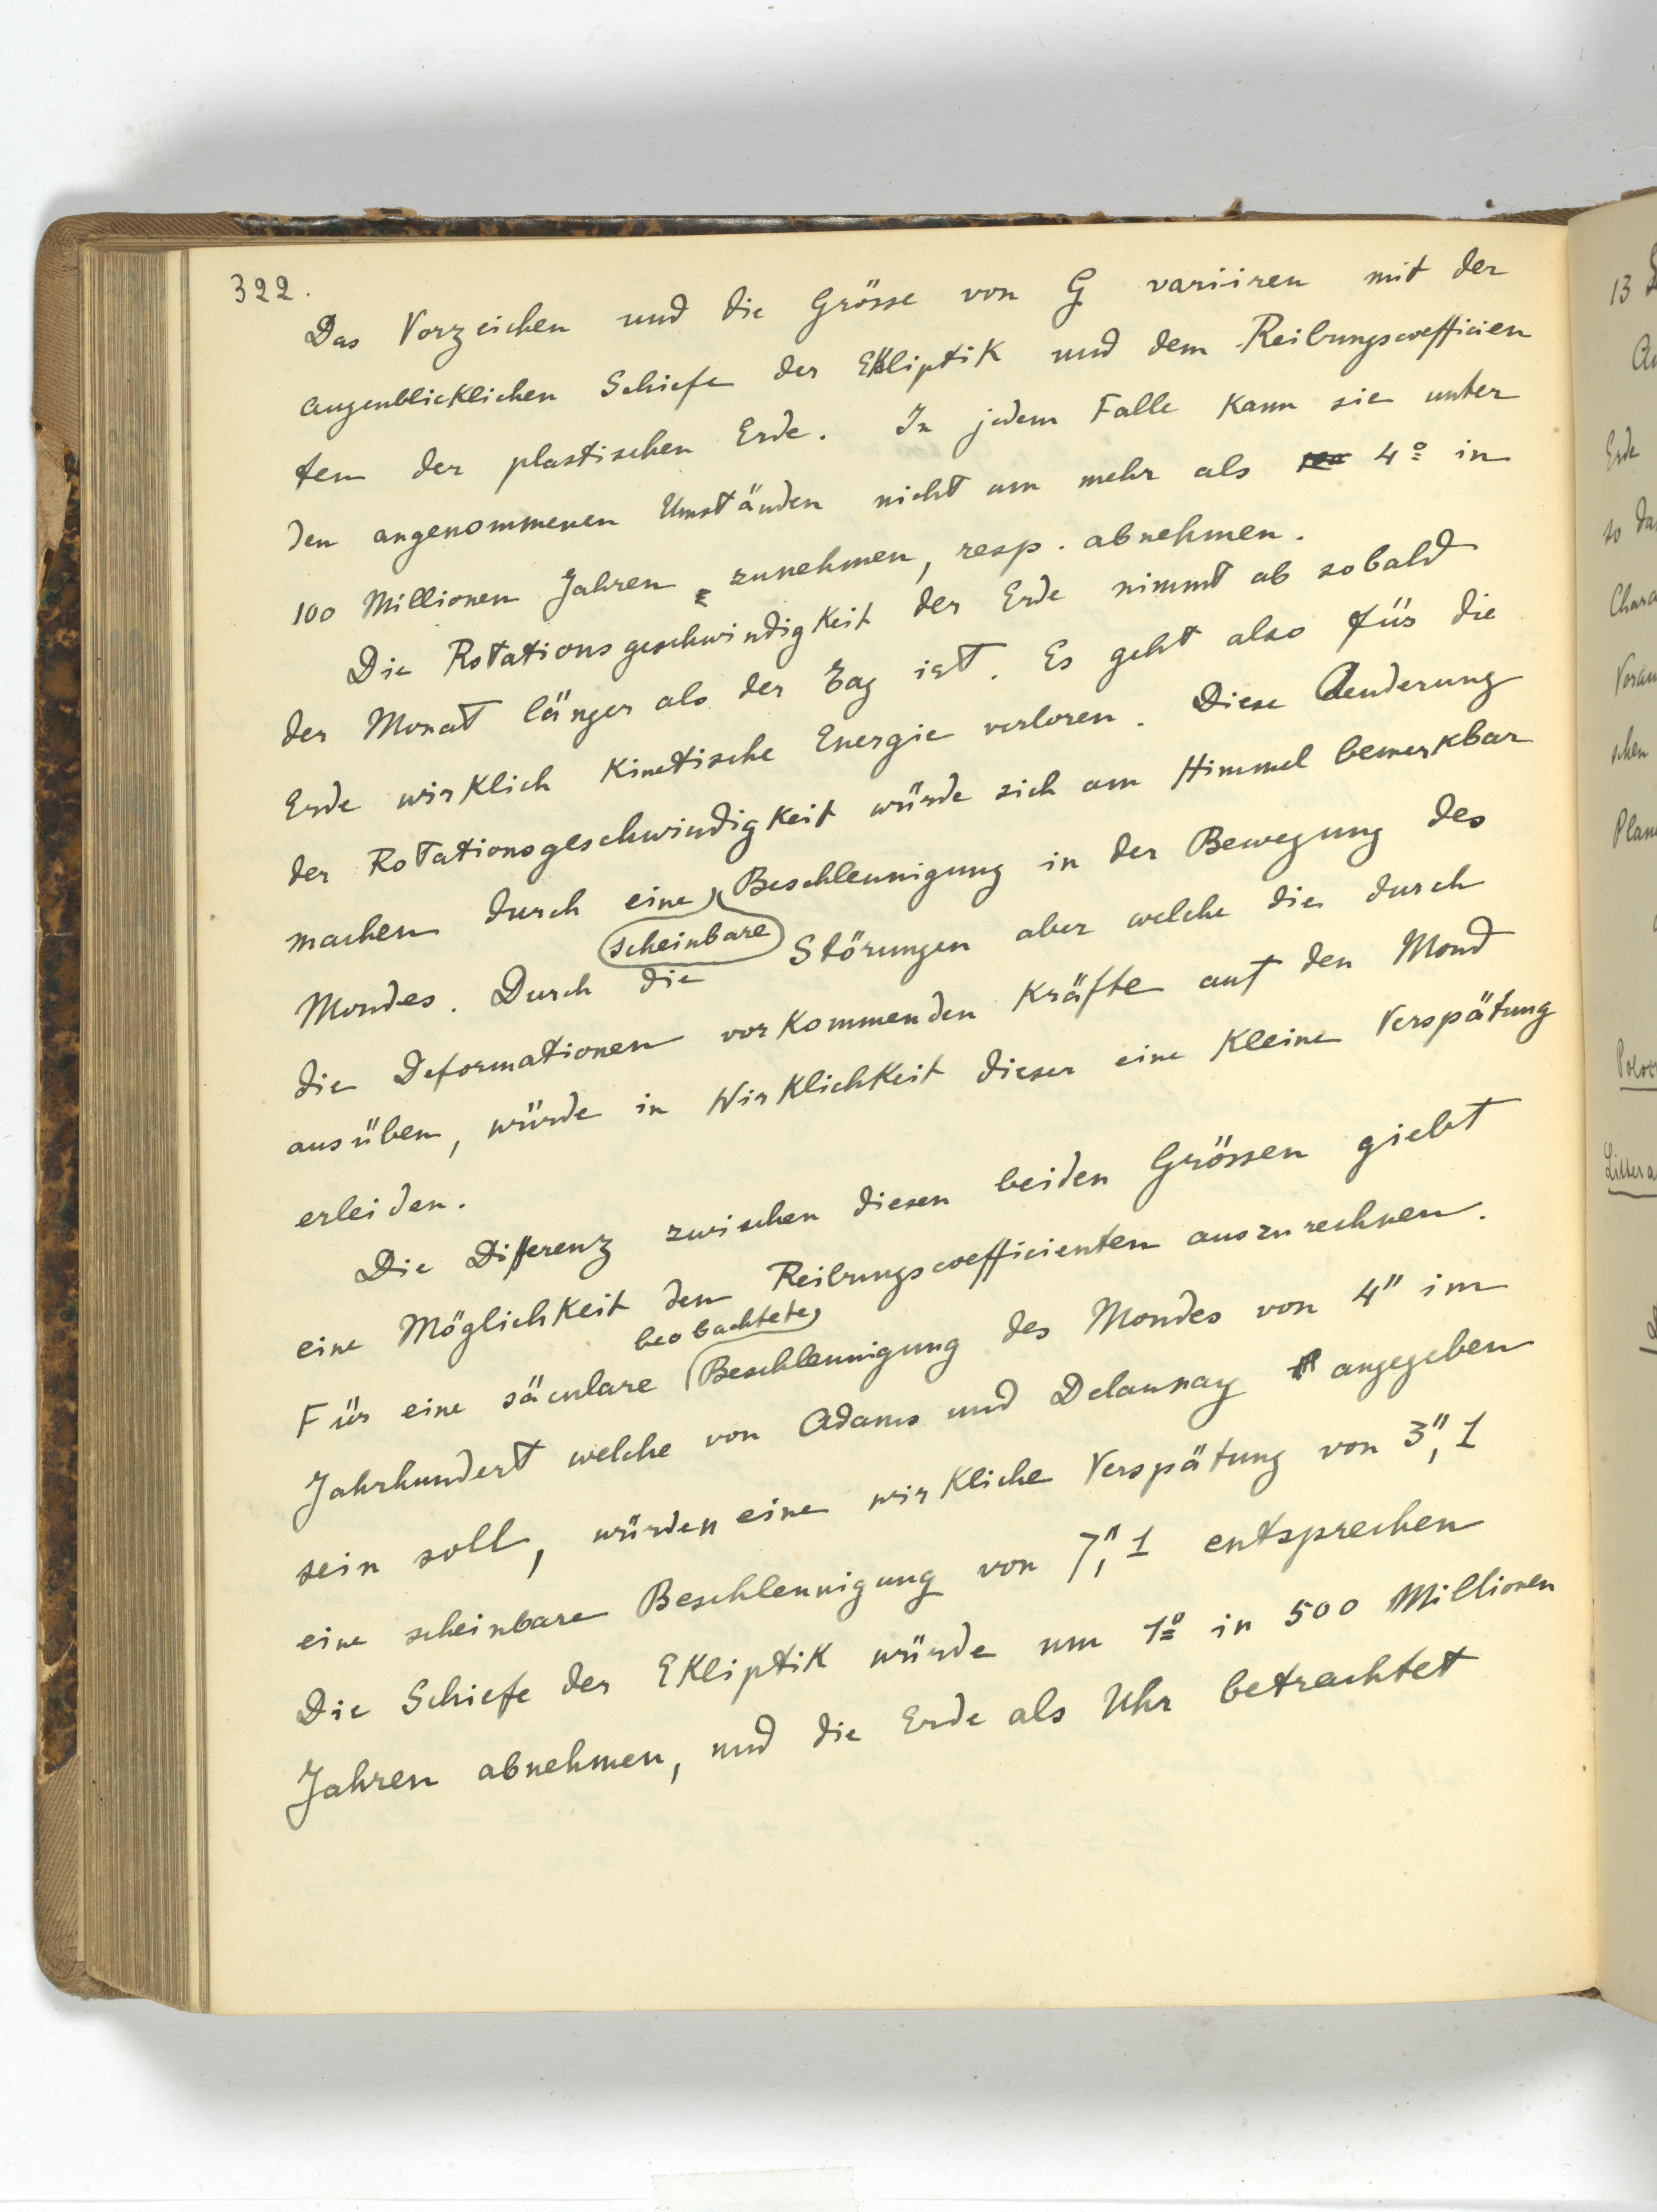 322.
Das Vorzeichen und die Grösse von G variiren mit der
augenblicklichen Schiefe der Ekliptik und dem Reibungscoefficien
ten der plastischen Erde. In jedem Falle kann sie unter
den angenommenen Umständen nicht um mehr als 4° in
100 Millionen Jahren zunehmen, resp. abnehmen.
Die Rotationsgeschwindigkeit der Erde nimmt ab sobald
der Monat länger als der Tag ist. Es geht also für die
Erde wirklich kinetische Energie verloren. Diese Aenderung
der Rotationsgeschwindigkeit würde sich am Himmel bemerkbar
machen durch eine scheinbare Beschleunigung in der Bewegung des
Mondes. Durch die Störungen aber welche die durch
die Deformationen vorkommenden Kräfte auf den Mond
ausüben, würde in Wirklichkeit dieser eine kleine Verspätung
erleiden.
Die Differenz zwischen diesen beiden Grössen giebt
eine Möglichkeit den Reibungscoefficienten auszurechnen.
Für eine säculare beobachtete Beschleunigung des Mondes von 4" im
Jahrhundert welche von Adams und Delaunay angegeben
sein soll, würden eine wirkliche Verspätung von 3",1
eine scheinbare Beschleunigung von 7",1 entsprechen
Die Schiefe der Ekliptik würde um 1° in 500 Millionen
Jahren abnehmen, und die Erde als Uhr betrachtet
13
Erde
so da
Chara
Voran
schen
Plan
Littera